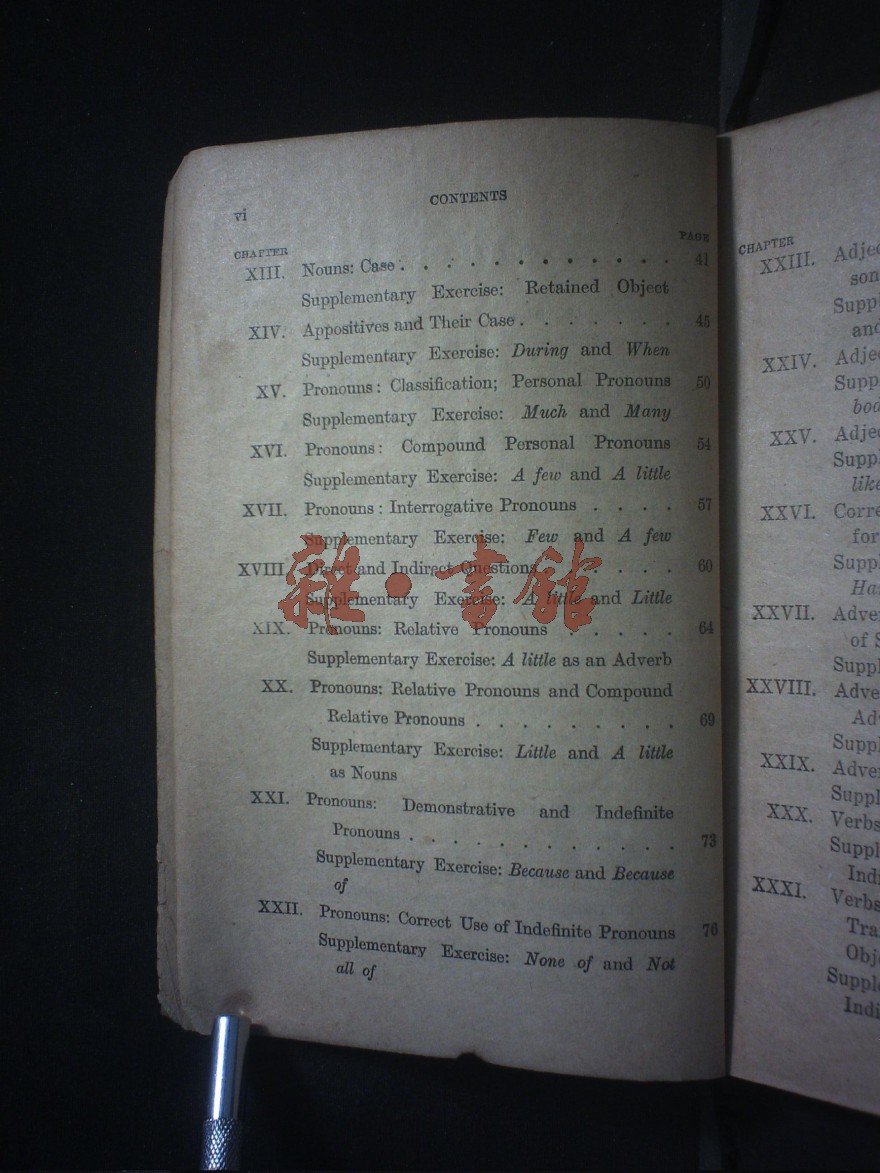 vi
CONTENTS
CHAPTER
PAGE
XIII. Nouns: Case . . . . . . . . . . . 41
Supplementary Exercise: Retained Object
XIV. Appositives and Their Case . . . . . . . 45
Supplementary Exercise: During and When
XV. Pronouns: Classification; Personal Pronouns 50
Supplementary Exercise: Much and Many
XVI. Pronouns: Compound Personal Pronouns 54
Supplementary Exercise: A few and A little
XVII. Pronouns: Interrogative Pronouns . . . . 57
Supplementary Exercise: Few and A few
XVIII. Direct and Indirect Questions . . . . . 60
Supplementary Exercise: A little and Little
XIX. Pronouns: Relative Pronouns . . . . . 64
Supplementary Exercise: A little as an Adverb
XX. Pronouns: Relative Pronouns and Compound
Relative Pronouns . . . . . . . . . 69
Supplementary Exercise: Little and A little
as Nouns
XXI. Pronouns: Demonstrative and Indefinite
Pronouns . . . . . . . . . . . . 73
Supplementary Exercise: Because and Because
of
XXII. Pronouns: Correct Use of Indefinite Pronouns 76
Supplementary Exercise: None of and Not
all of
雜·書館
CHAPTER
XXIII. Adjec
son
Suppl
and
XXIV. Adjec
Supp
boa
XXV. Adjec
Suppl
like
XXVI. Corre
for
Suppl
Ha
XXVII. Adve
of S
Suppl
XXVIII. Adve
Ad
Suppl
XXIX. Adve
Suppl
XXX. Verbs
Suppl
Indi
XXXI. Verbs
Tra
Obje
Supple
Indi